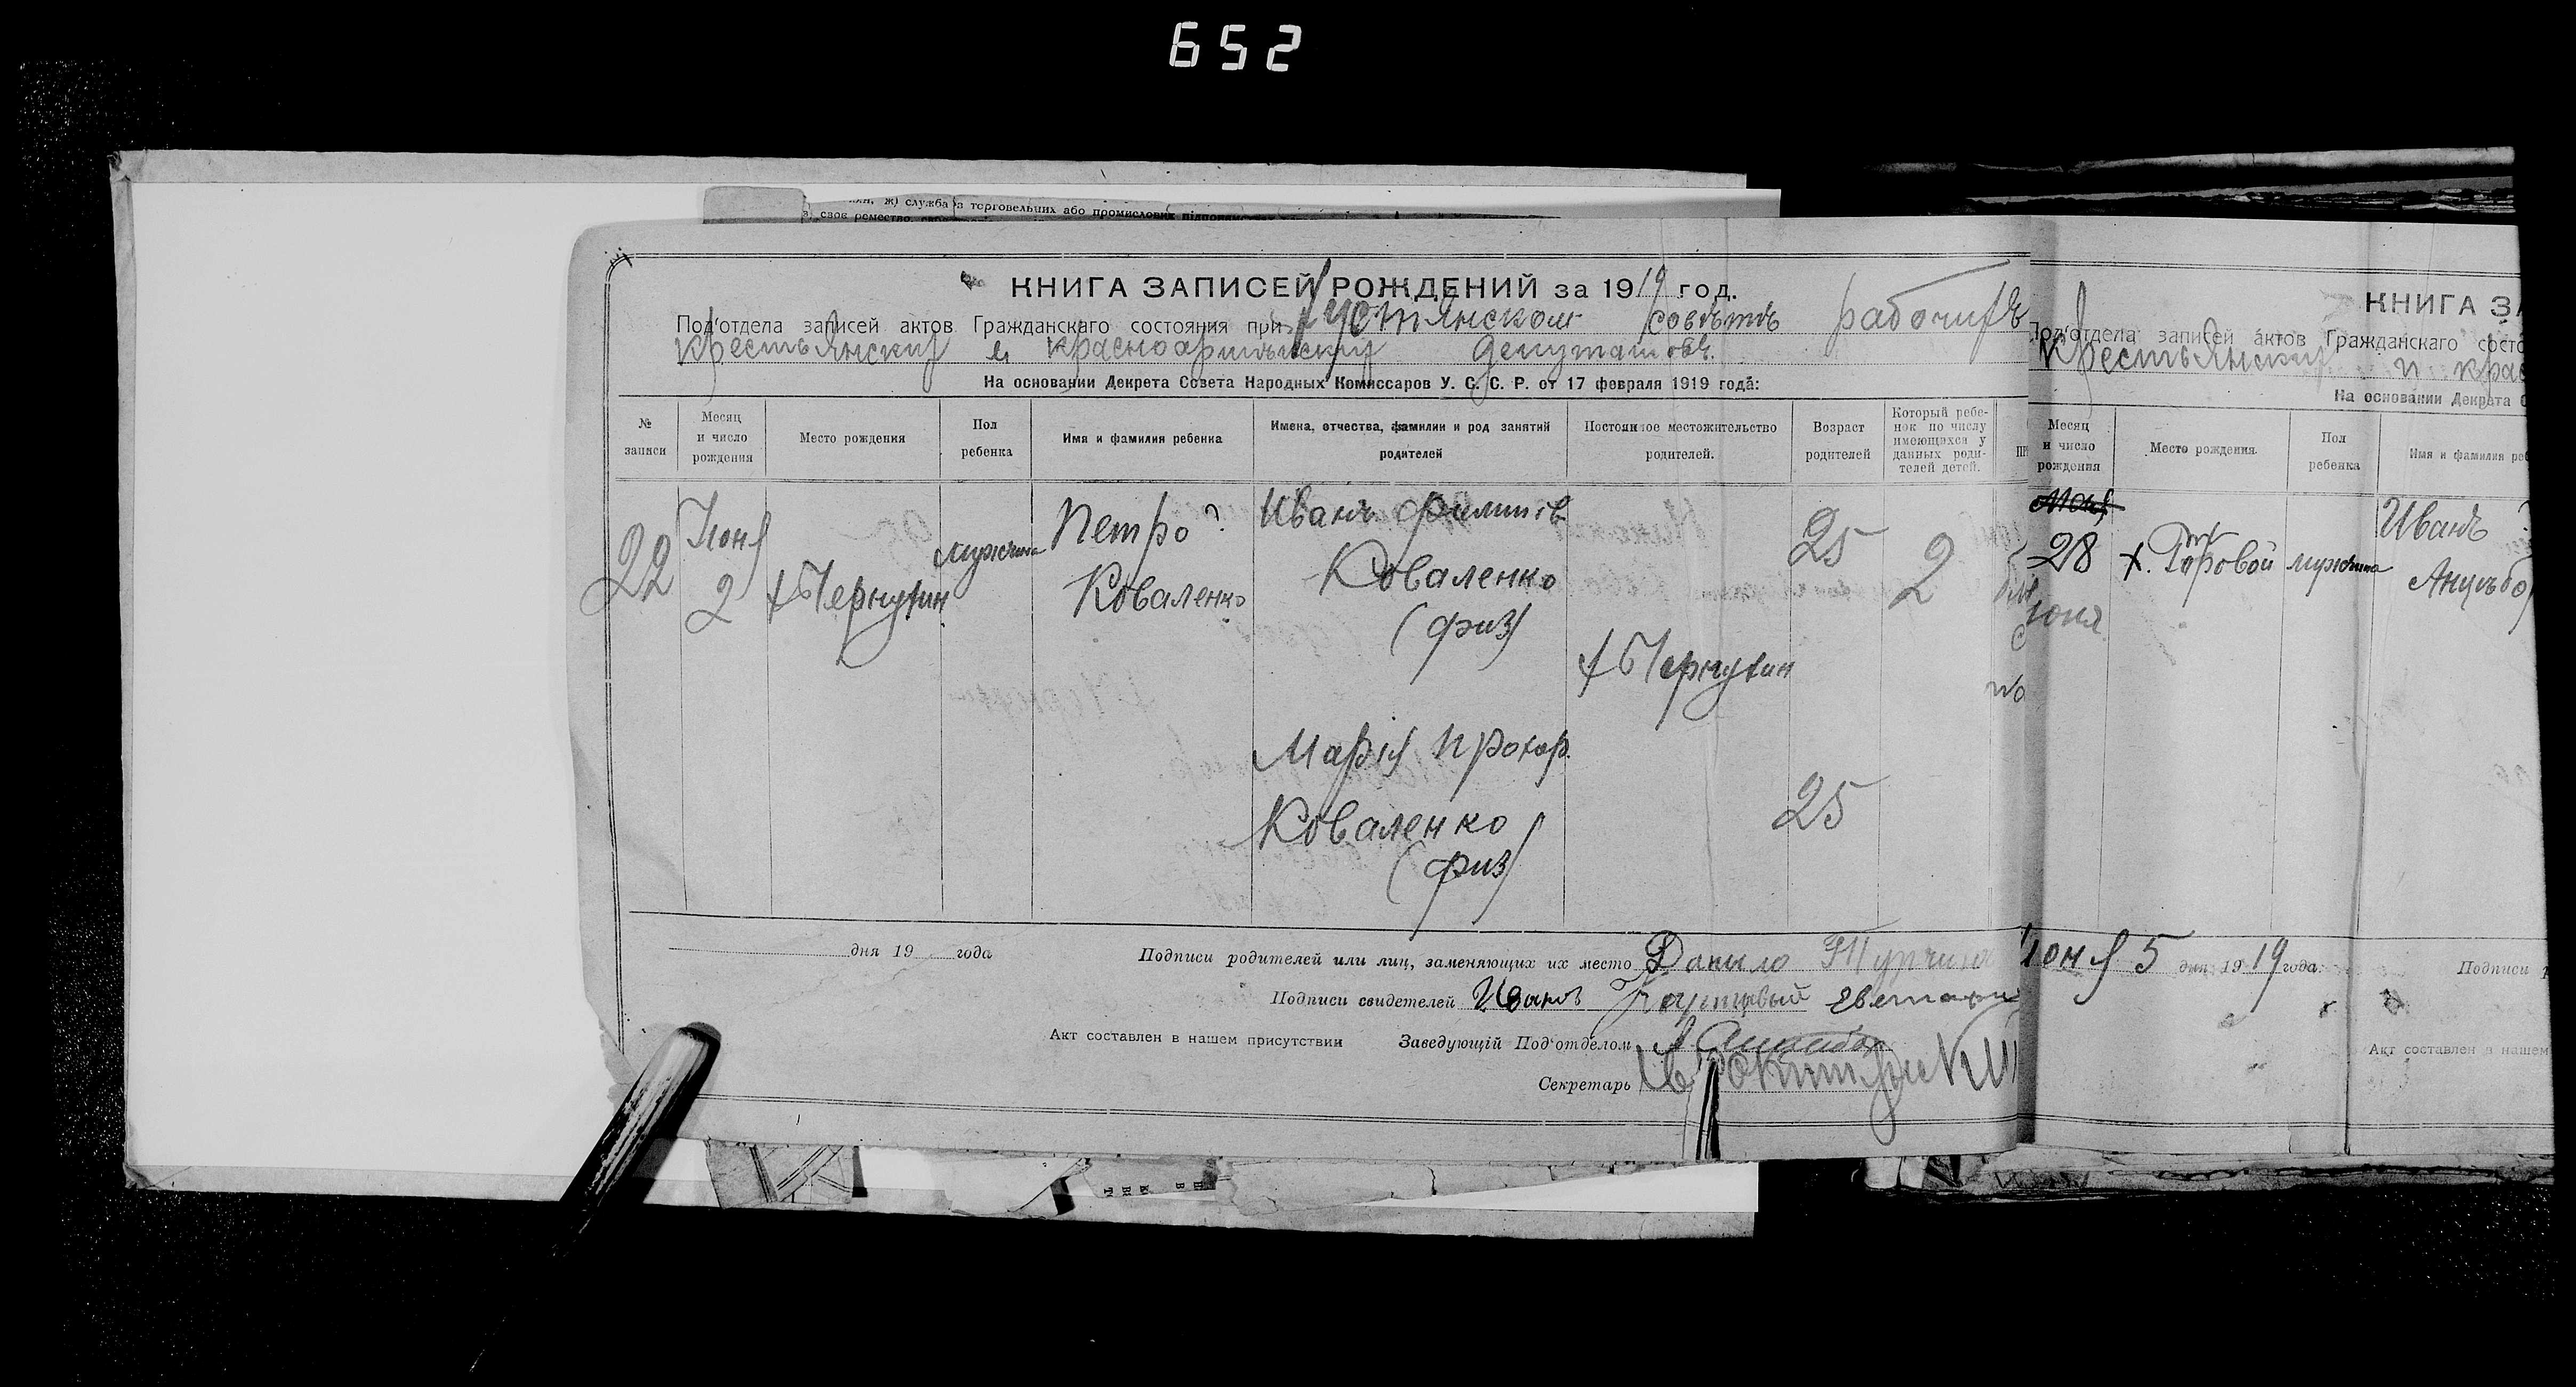 652
ж) служба в торговельних або промислових
КНИГА ЗАПИСЕЙ РОЖДЕНИЙ за 1919 год.
Под'отдела записей актов Гражданскаго состояния при совѣтѣ рабочихъ
крестьянских и красноармѣйских депутатовъ.
На основании Декрета Совета Народных Комиссаров У. С. С. Р. от 17 февраля 1919 года:
№ записи
Месяц и число рождения
Место рождения
Пол ребенка
Имя и фамилия ребенка
Имена, отчества, фамилии и род занятий родителей
Постоянное местожительство родителей.
Возраст родителей
Который ребенок по числу имеющихся у данных родителей детей.
22
Іюня
2
х Чернухин
мужчина
Петро ?
Коваленко
Иванъ Филип
Коваленко
(физ)
х Чернухин
25
2
Марія Прохор.
Коваленко
(физ)
25
дня 19 года
Подписи родителей или лиц, заменяющих их место Данило
Подписи свидетелей Иванъ
Акт составлен в нашем присутствии Заведующій Под'отделом
Секретарь
КНИГА ЗА
Под'отдела записей актов Гражданскаго состо
Крестьянских и крас
На основании Декрата С
Месяц и число рождения
Место рождения.
Пол ребенка
Имя и фамилия реб
28
юня
х.
мужчина
Иванъ
Іюня 5 дня 1919 года.
Подписи
Акт составлен в нашем